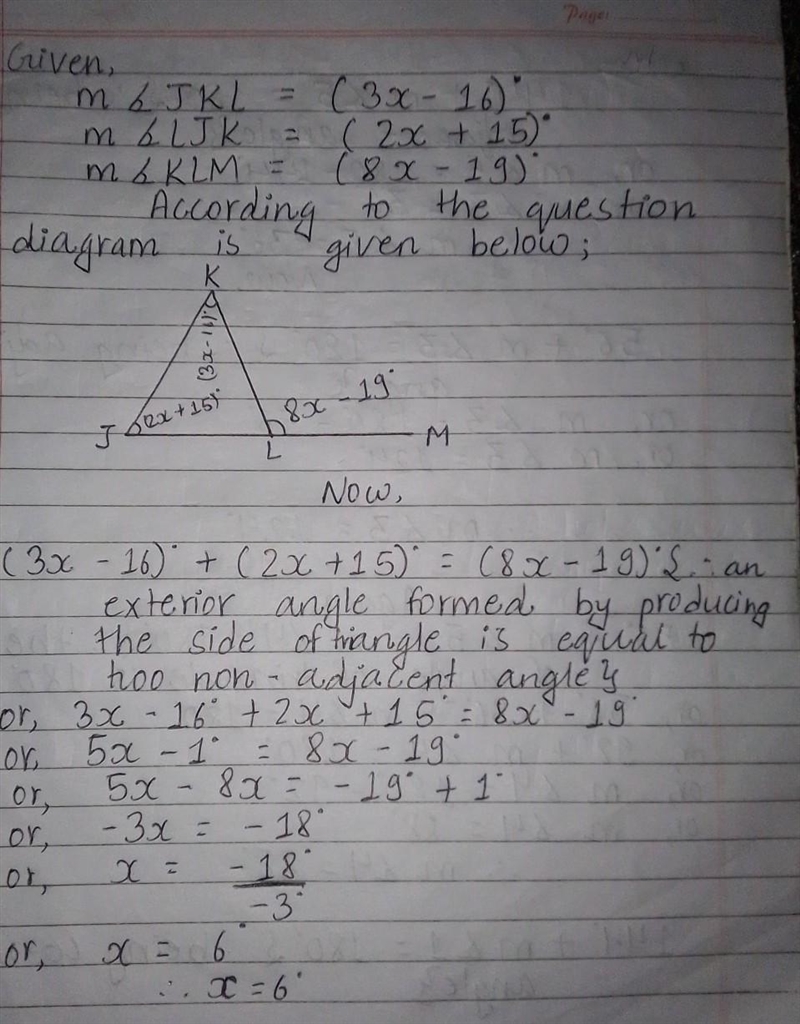 Page:
Given,
m∡JKL = (3x - 16)°
m∡LJK = (2x + 15)°
m∡KLM = (8x - 19)°
According to the question
diagram is given below;
K
(3x - 16)°
J (2x + 15)° 8x - 19°
L M
Now,
(3x - 16)° + (2x + 15)° = (8x - 19)° {∴ an
exterior angle formed by producing
the side of triangle is equal to
two non-adjacent angle}
or, 3x - 16° + 2x + 15° = 8x - 19°
or, 5x - 1° = 8x - 19°
or, 5x - 8x = -19° + 1°
or, -3x = -18°
or, x = -18°
-3°
or, x = 6°
∴ x = 6°